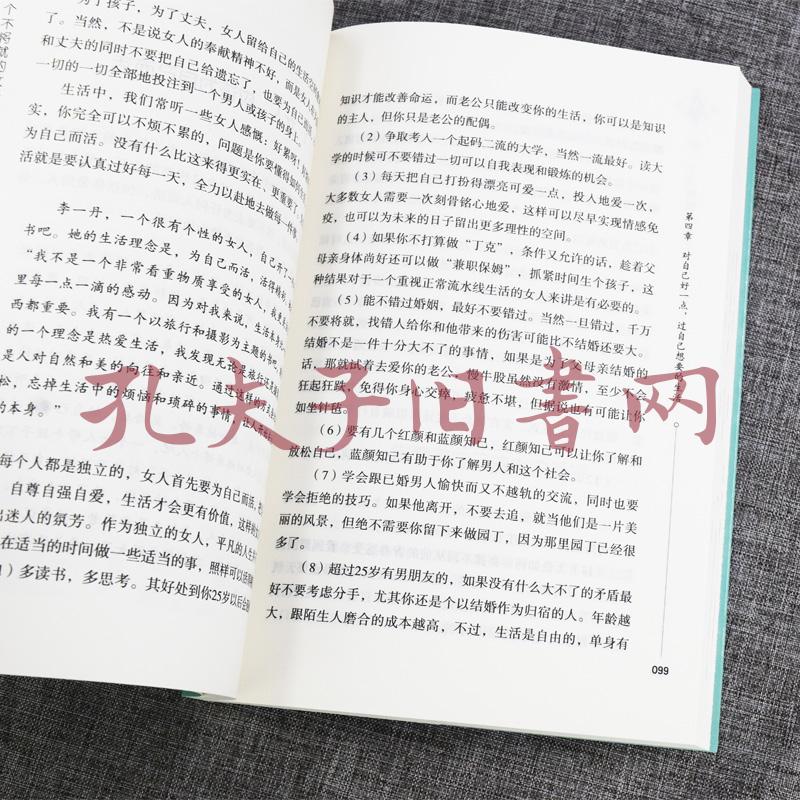 为了孩子，为了丈夫，女人留给自己的生活空间
了。当然，不是说女人的奉献精神不好，而是女人在
和丈夫的同时不要把自己给遗忘了，也要为自己
一切的一切全部地投注到一个男人或孩子的身上。
生活中，我们常听一些女人感慨：好累啊！
实，你完全可以不烦不累的，问题是你要懂得如何
为自己而活。没有什么比这来得更实在、更重要了。
活就是要认真过好每一天，全力以赴地去做每一件事。
李一丹，一个很有个性的女人，自己开了一
书吧。她的生活理念是，为自己而活，活得精彩。
“我不是一个非常看重物质享受的女人，我更
里每一点一滴的感动。因为对我来说，生活本身比
西都重要。我有一个以旅行和摄影为主题的书吧，
的一个理念是热爱生活，我发现无论是旅行还是
是人对自然和美的向往和亲近。通过这样
松，忘掉生活中的烦恼和琐碎的事情，让人
的本身。”
每个人都是独立的，女人首先要为自己而活，
自尊自强自爱，生活才会更有价值，这样
出迷人的氛芳。作为独立的女人，平凡的人生
在适当的时间做一些适当的事，照样可以
）多读书，多思考。其好处到你25岁以后会
知识才能改善命运，而老公只能改变你的生活，你可以是知识
的主人，但你只是老公的配偶。
（2）争取考入一个起码二流的大学，当然一流最好。读大
学的时候可不要错过一切可以自我表现和锻炼的机会。
（3）每天把自己打扮得漂亮可爱一点，投人地爱一次，
大多数女人需要一次刻骨铭心地爱，这样可以尽早实现情感免
疫，也可以为未来的日子留出更多理性的空间。
（4）如果你不打算做“丁克”，条件又允许的话，趁着父
母亲身体尚好还可以做“兼职保姆”，抓紧时间生个孩子，这
种结果对于一个重视正常流水线生活的女人来讲是有必要的。
（5）能不错过婚姻，最好不要错过。当然一旦错过，千万
不要将就，找错人给你和他带来的伤害可能比不结婚还要大。
结婚不是一件十分大不了的事情，如果是为了父母亲结婚的
话，那就试着去爱你的老公，慢牛股虽然没有激情，至少不会
狂起狂跌，免得你身心交瘁，疲惫不堪，但据说也有可能让你
如坐针毡。
（6）要有几个红颜和蓝颜知己，红颜知己可以让你了解和
放松自己，蓝颜知己有助于你了解男人和这个社会。
（7）学会跟已婚男人愉快而又不越轨的交流，同时也要
学会拒绝的技巧。如果他离开，不要去追，就当他们是一片美
丽的风景，但绝不需要你留下来做园丁，因为那里园丁已经很
多了。
（8）超过25岁有男朋友的，如果没有什么大不了的矛盾最
好不要考虑分手，尤其你还是个以结婚作为归宿的人。年龄越
大，跟陌生人磨合的成本越高，不过，生活是自由的，单身有
第四章 对自己好一点，过自己想要的生活
099
孔夫子旧书网